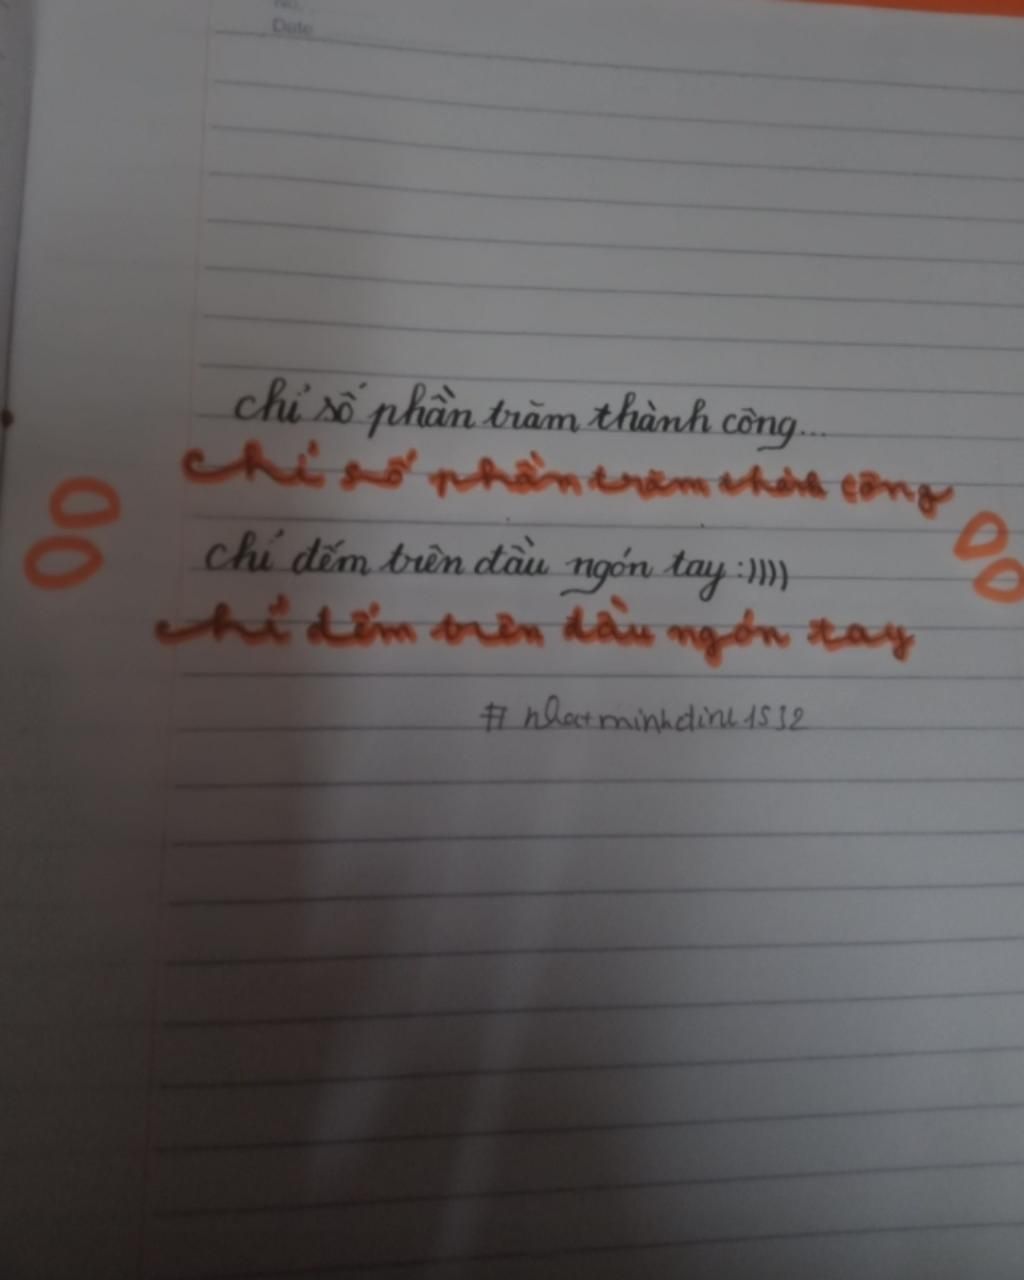 No.
Date
chỉ số phần trăm thành công...
chỉ số phần trăm thành công
chỉ đếm trên đầu ngón tay :))))
chỉ đếm trên đầu ngón tay
# nhatminhdinh1532